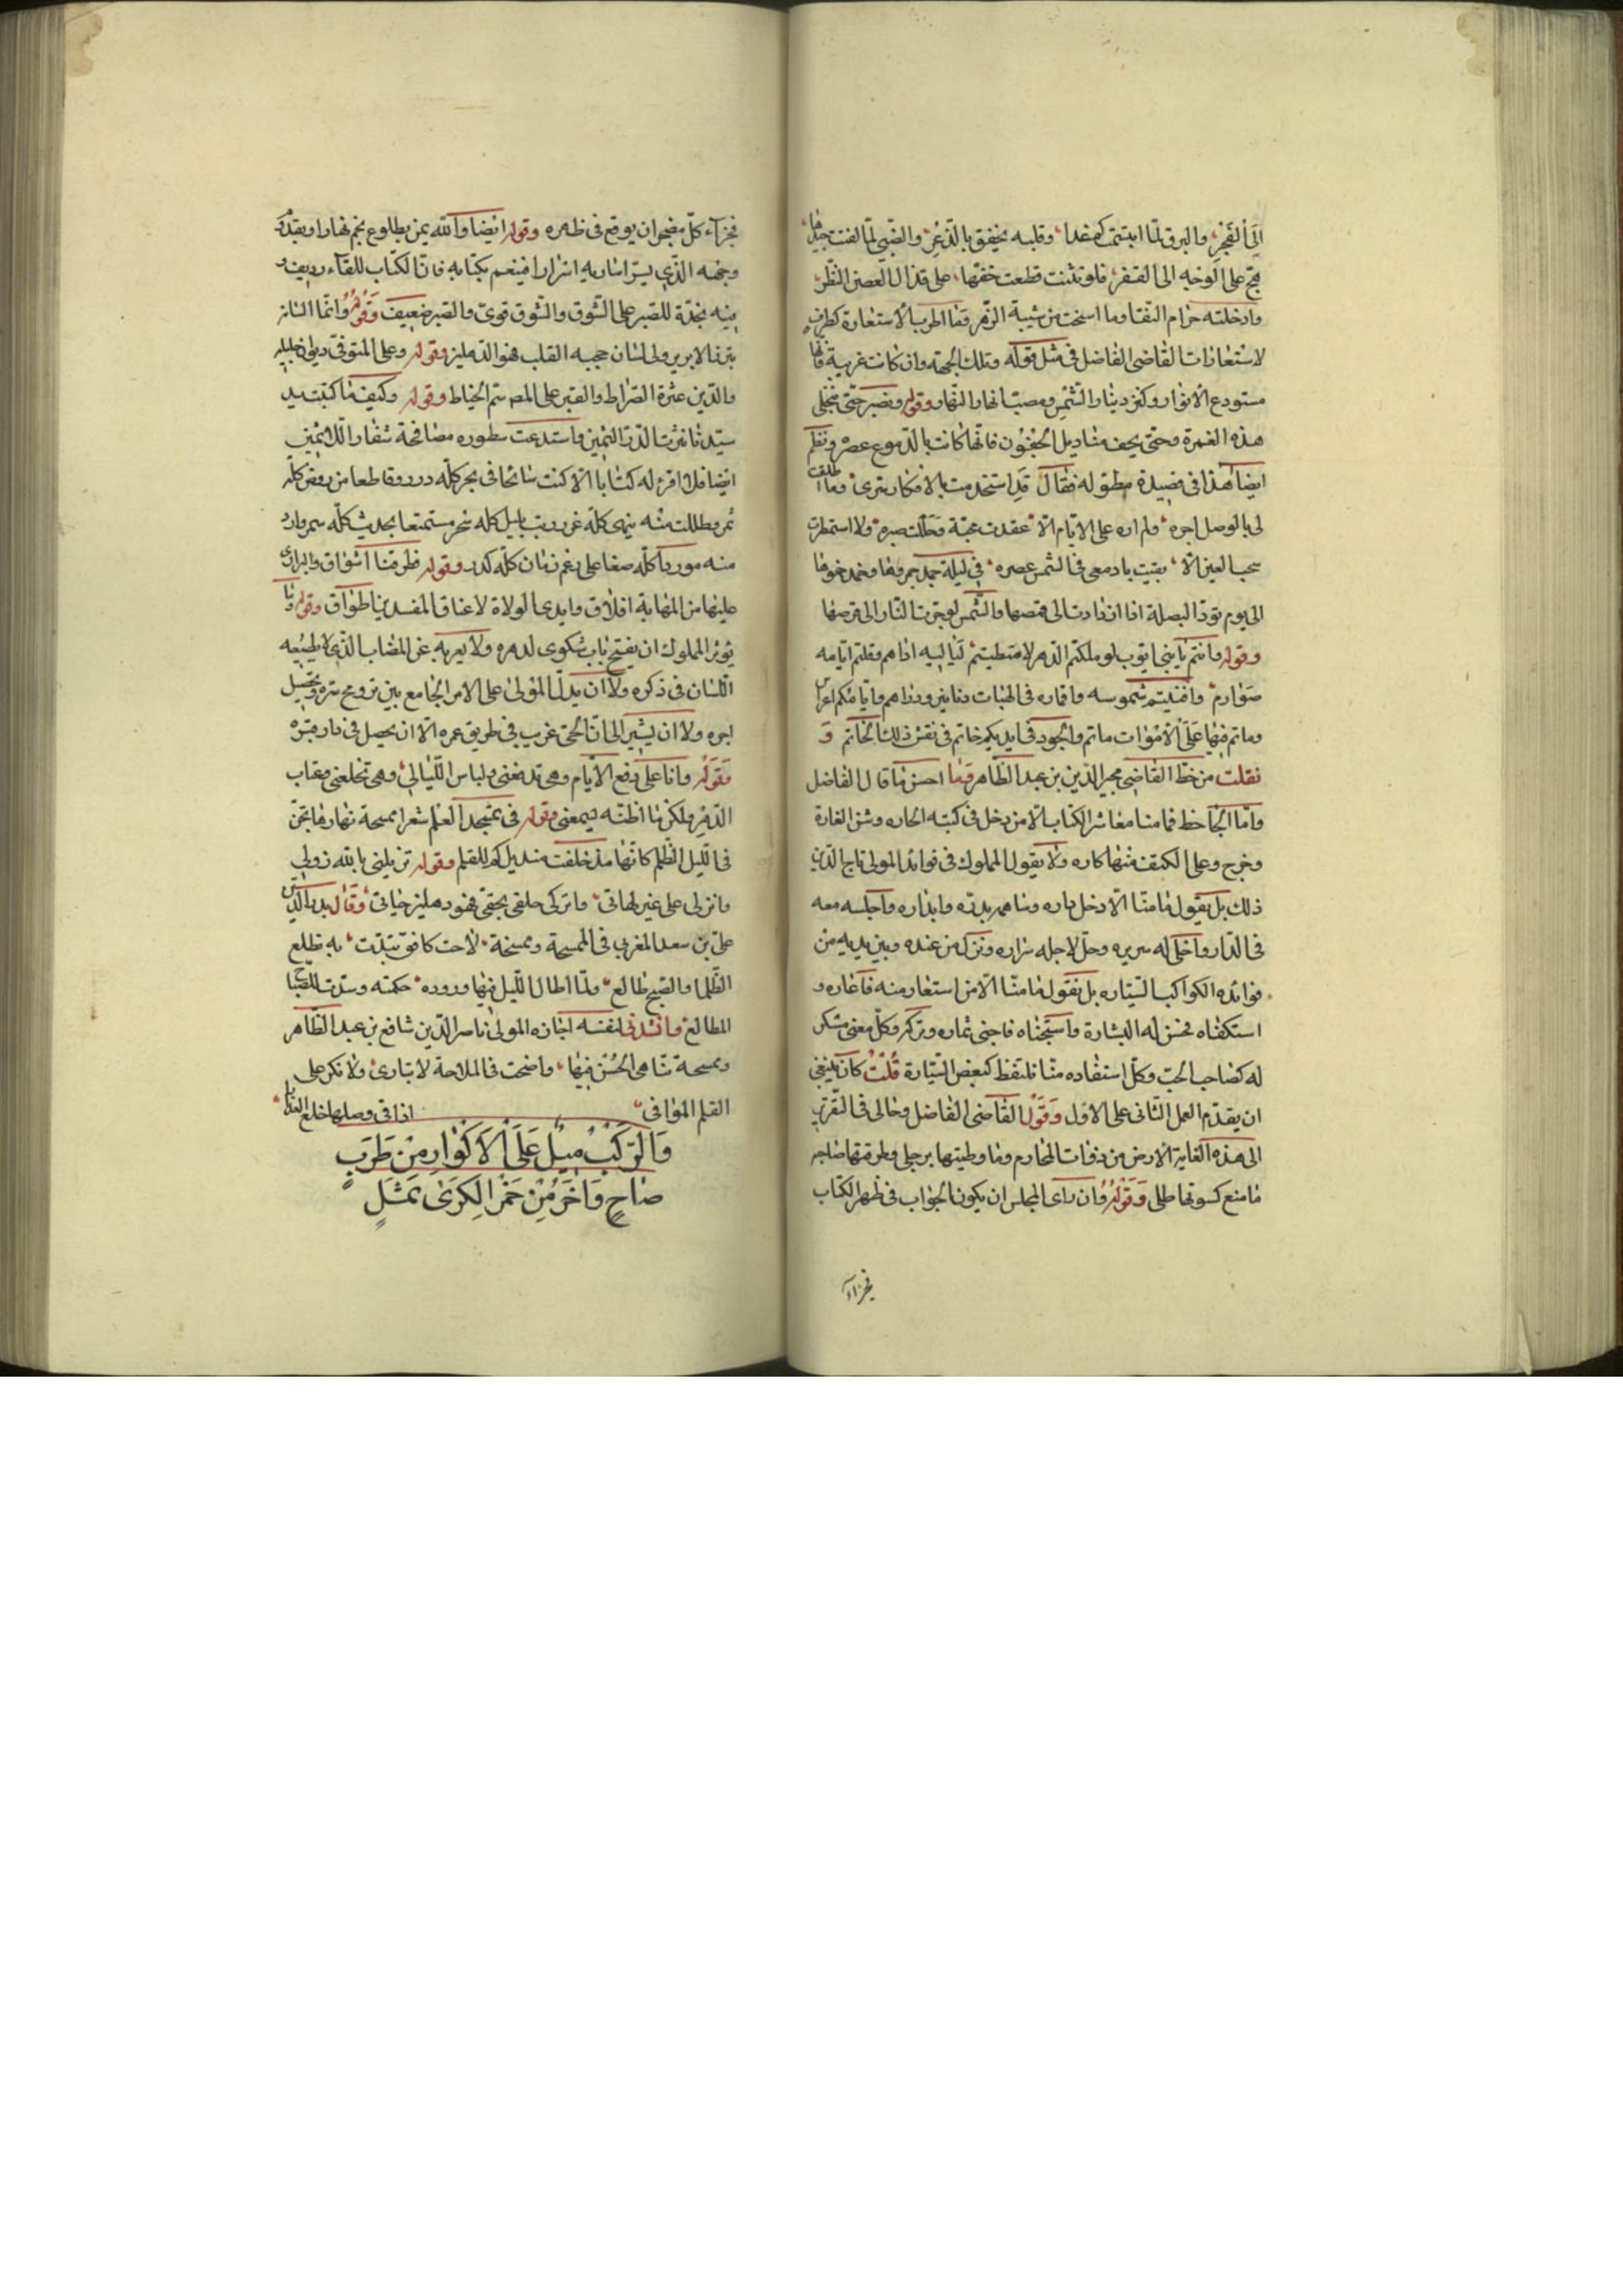 إلى الفجر، والبرق لما ابتسمت كم غدا، وقلبه يخفق بالذعر، والضبي لما لفتت جيدها،
فج على الوجه الى القفر، فلو تثنت قطعت خفها، على قذال الغصن النظر،
وادخلته حرام النقا وما استحت من شيبة الزهر وما اطرب الاستعارة كطرف
لاستعارات القاضى الفاضل فى مثل قوله وتلك الجهة وان كانت غريبة فانها
مستودع الأنوار وكنز دينار الشمس ومصب انهار النهار وقوله ونصبر حتى تنجلى
هذه الغمرة وحتى يجف مناديل الجفون فانها كانت بالدموع عصره ونظم
ايضا هذا فى قصيدة مطوله فقال قد استخدمت بالافكار سرى، وما اطلقت
لى بالوصل اجره، ولم اره على الايام الا، عقدت محبة وحللت صبره، ولا استمطرت
سحب العين الا، بقيت بادمعى فى الشمس عصره، فى ليلة جمد جمرها وخمد خوفها
الى يوم تود البصلة اذا ازدادت الى قمصها والشمس لو جرت النار الى قرصها
وقوله وانتم يا بنى ايوب لو ملكتم الدهر لامتطيتم، لياليه اداهم وقلدتم ايامه
صوارم، وافنيتم شموسه واقماره فى الهبات دنانير ودراهم وايامكم اعراس
وما تم فيها على الأموات ماتم والجود فى ايديكم خاتم فى نقش ذلك الخاتم و
نقلت من خط القاضى مجير الدين بن عبد الظاهر وما احسن ما قال الفاضل
واما الجاحظ فما منا معاشر الكتاب الا من دخل فى كتبه الحاره وشن الغارة
وخرج وعلى الكتف منها كاره ولا يقول المملوك فى فوائد المولى تاج الدين
ذلك بل يقول ما منا الا دخل داره وساهم بدره وابداره واجلسه معه
فى الدار واخلى له سريره وحل لاجله ازراره ونزل من عنده وبين يديه من
فوائده الكواكب السيّاره بل نقول ما منا الا من استعار منه فاعاره و
استكفاه فحسن له البشارة واستجناه فاجنى ثماره وتركه وكل معنى مشكر
له كصاحب الحب وكل استفاده منا فلتقط كبعض السيّارة قلت كان ينبغى
ان يقدم العمل الثانى على الاول وقول القاضى الفاضل وحالى فى التقرب
الى هذه الغاية الأرض من ذوات المحارم وما وطيتها برجلى وطرقتها ضاجه
ما منع كسوتها طللى وقوله وان راى المجلس ان يكون الجواب فى ظهر الكتاب
فجزاء
فجزاء كل مضجوان يوقع فى ظهره وقوله ايضا والله يمن بطلوع نجم نهارا ويقدّر
وجهه الذى يسر اساريه اسرارا فينعم بكتابه فان الكتاب للقاء رديف و
فيه نجدة للصبر على الشوق والشوق قوى والصبر ضعيف وقوله وانما اللسان
يترف الابريز ولى لسان حجبه القلب فهو الدهليز وقوله وعلى المتوفى ديون خليله
والدين عثرة الصراط والقبر على المصر سم الخياط وقوله وكيف ما كتبت يد
سيدنا نثرت الدر الثمين واستدعت سطوره مصافحة شفار اللائمين
ايضا فلم اقرء له كتابا الا كنت سابحا فى بحر كله درر وقاطعا من روض كله
ثمر وطللت منه ينهى كله غرر وبت بليل كله سحر مستمتعا بحديث كله سمر وارد
منه موردا كله صفا على رغم زمان كله كدر وقوله فطرقنا اشواق والبرارى
عليها من المهابة اغلاق وايدى الولاة لاعناق المفسدين اطواق وقوله ويا
يؤثر المملوك ان يفتح باب شكوى لدهره ولا يعربه عن المصاب الذى لا يطيعه
اللسان فى ذكره ولا ان يدل المولى على الامر الجامع بين ترويح سره وتحصيل
اجره ولا ان يشير الى ان الحى غريب فى طريق عمره الا ان يحصل فى دار قبره
وقوله وانا على دفع الأيام وهى تدفعنى ولباس الليالى، وهى تخلعنى وعتاب
الدهر ولكن ما اظنه يسمعنى وقوله فى تمجيد العلم شعرا ممسحة نهارها يجنّ
فى الليل الظلم كانها مذ خلفت منديل كم للقلم وقوله تزيلنى بالله زولى
وانزلى على غير لهاتى، واتركى حلقى بحقى فهو دهليز حياتى، وقال بدر الدين
على بن سعد المغربى فى الممسحة وممسحة، لاحت كافق تبدت، به تطلع
الظلما والصبح طالع، ولما اطال الليل فيها وروده، حكمته وسدت للصباح
المطالع وانشدنى لنفسه اجازه المولى ناصر الدين شافع بن عبد الظاهر
وممسحة تناهى الحسن فيها، واضحت فى الملاحة لا تبارى، ولا نكر على
القلم الموافى، اذا فى وصلها خلع العذارا
وَالرَّكْبُ مِيلٌ عَلَى الْاَكْوَارِ مِنْ طَرَبٍ
صَاحٍ وَاٰخَرُ مِنْ خَمْرِ الْكَرَى ثَمِلٍ